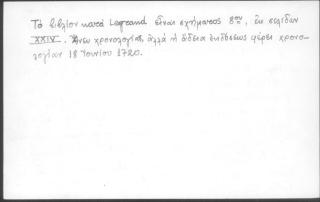 Τὸ βιβλίον κατὰ Legrand εἶναι σχήματος 8ου, ἐκ σελίδων
XXIV. Ἄνευ χρονολογίας, ἀλλὰ ἡ ἄδεια ἐκδόσεως φέρει χρονο-
λογίαν 18 Ἰουνίου 1720.